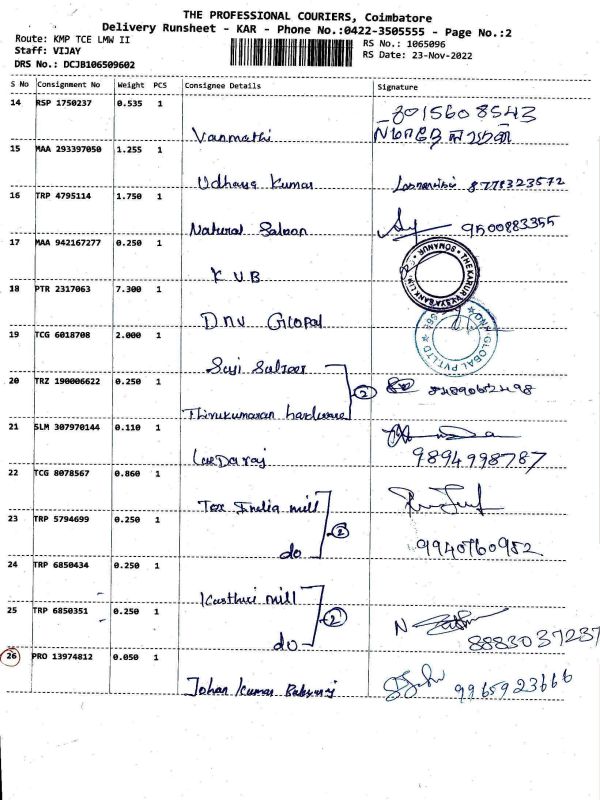 THE PROFESSIONAL COURIERS, Coimbatore
Delivery Runsheet - KAR - Phone No.:0422-3505555 - Page No.:2
Route: KMP TCE LMW II
Staff: VIJAY
DRS No.: DCJB106509602
RS No.: 1065096
RS Date: 23-Nov-2022
S No Consignment No Weight PCS Consignee Details Signature
14 RSP 1750237 0.535 1
Vanmathi 8015608543
15 MAA 293397050 1.255 1
Udhaya Kumar 8778323572
16 TRP 4795114 1.750 1
Natural Saloon 9500883355
17 MAA 942167277 0.250 1
K V B
SOMANUR
18 PTR 2317063 7.300 1
DNV Glopal
GLOBAL PVT LTD
19 TCG 6018708 2.000 1
20 TRZ 190006622 0.250 1
2
Thirukumaran hardware
21 SLM 307970144 0.110 1
9894998787
22 TCG 8078567 0.860 1
Tex India mill
23 TRP 5794699 0.250 1
2
do 9940760952
24 TRP 6850434 0.250 1
Kasthuri mill
25 TRP 6850351 0.250 1
2
do 8883037237
26 PRO 13974812 0.050 1
9965923666